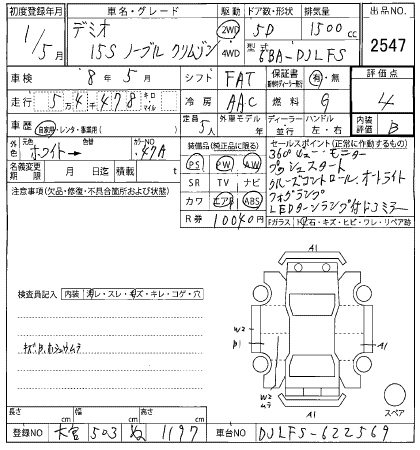 初度登録年月 車名・グレード 駆動 ドア数・形状 排気量 出品NO.
1/5月 デミオ 2WD 5D 1500cc
15S ノーブル クリムゾン 4WD 型式 6BA-DJLFS 2547
車検 8年5月 シフト FAT 保証書 有・無 評価点
走行 5万4千478 キロ マイル 冷房 AAC 燃料 G 4
車歴 自家用・レンタ・事業用( ) 定員 5人 外車モデル 年 ディーラー 並行 ハンドル 左・右 内装評価 B
外色 元色 ホワイト→ 色替 カラーNO. 47A 装備品(純正品に限る) セールスポイント(正常に作動するもの)
名義変更期限 月 日迄 積載 t PS PW AW 360°ビュー・モニター
注意事項(欠品・修復・不具合箇所および状態) SR TV ナビ プッシュスタート
カワ エアB ABS クルーズコントロール、オートライト
R券 10040円 フォグランプ
LEDターンランプ付ドアミラー
Fガラス 石・キズ・ヒビ・ワレ・リペア跡
検査員記入 内装 スレ・キズ・キレ・コゲ・穴
A1
W2
B1 A1
W2
ムラ
A1
スペア
長さ cm 幅 cm 高さ cm
登録NO 大宮 503 ぬ 1197 車台NO DJLFS-622569